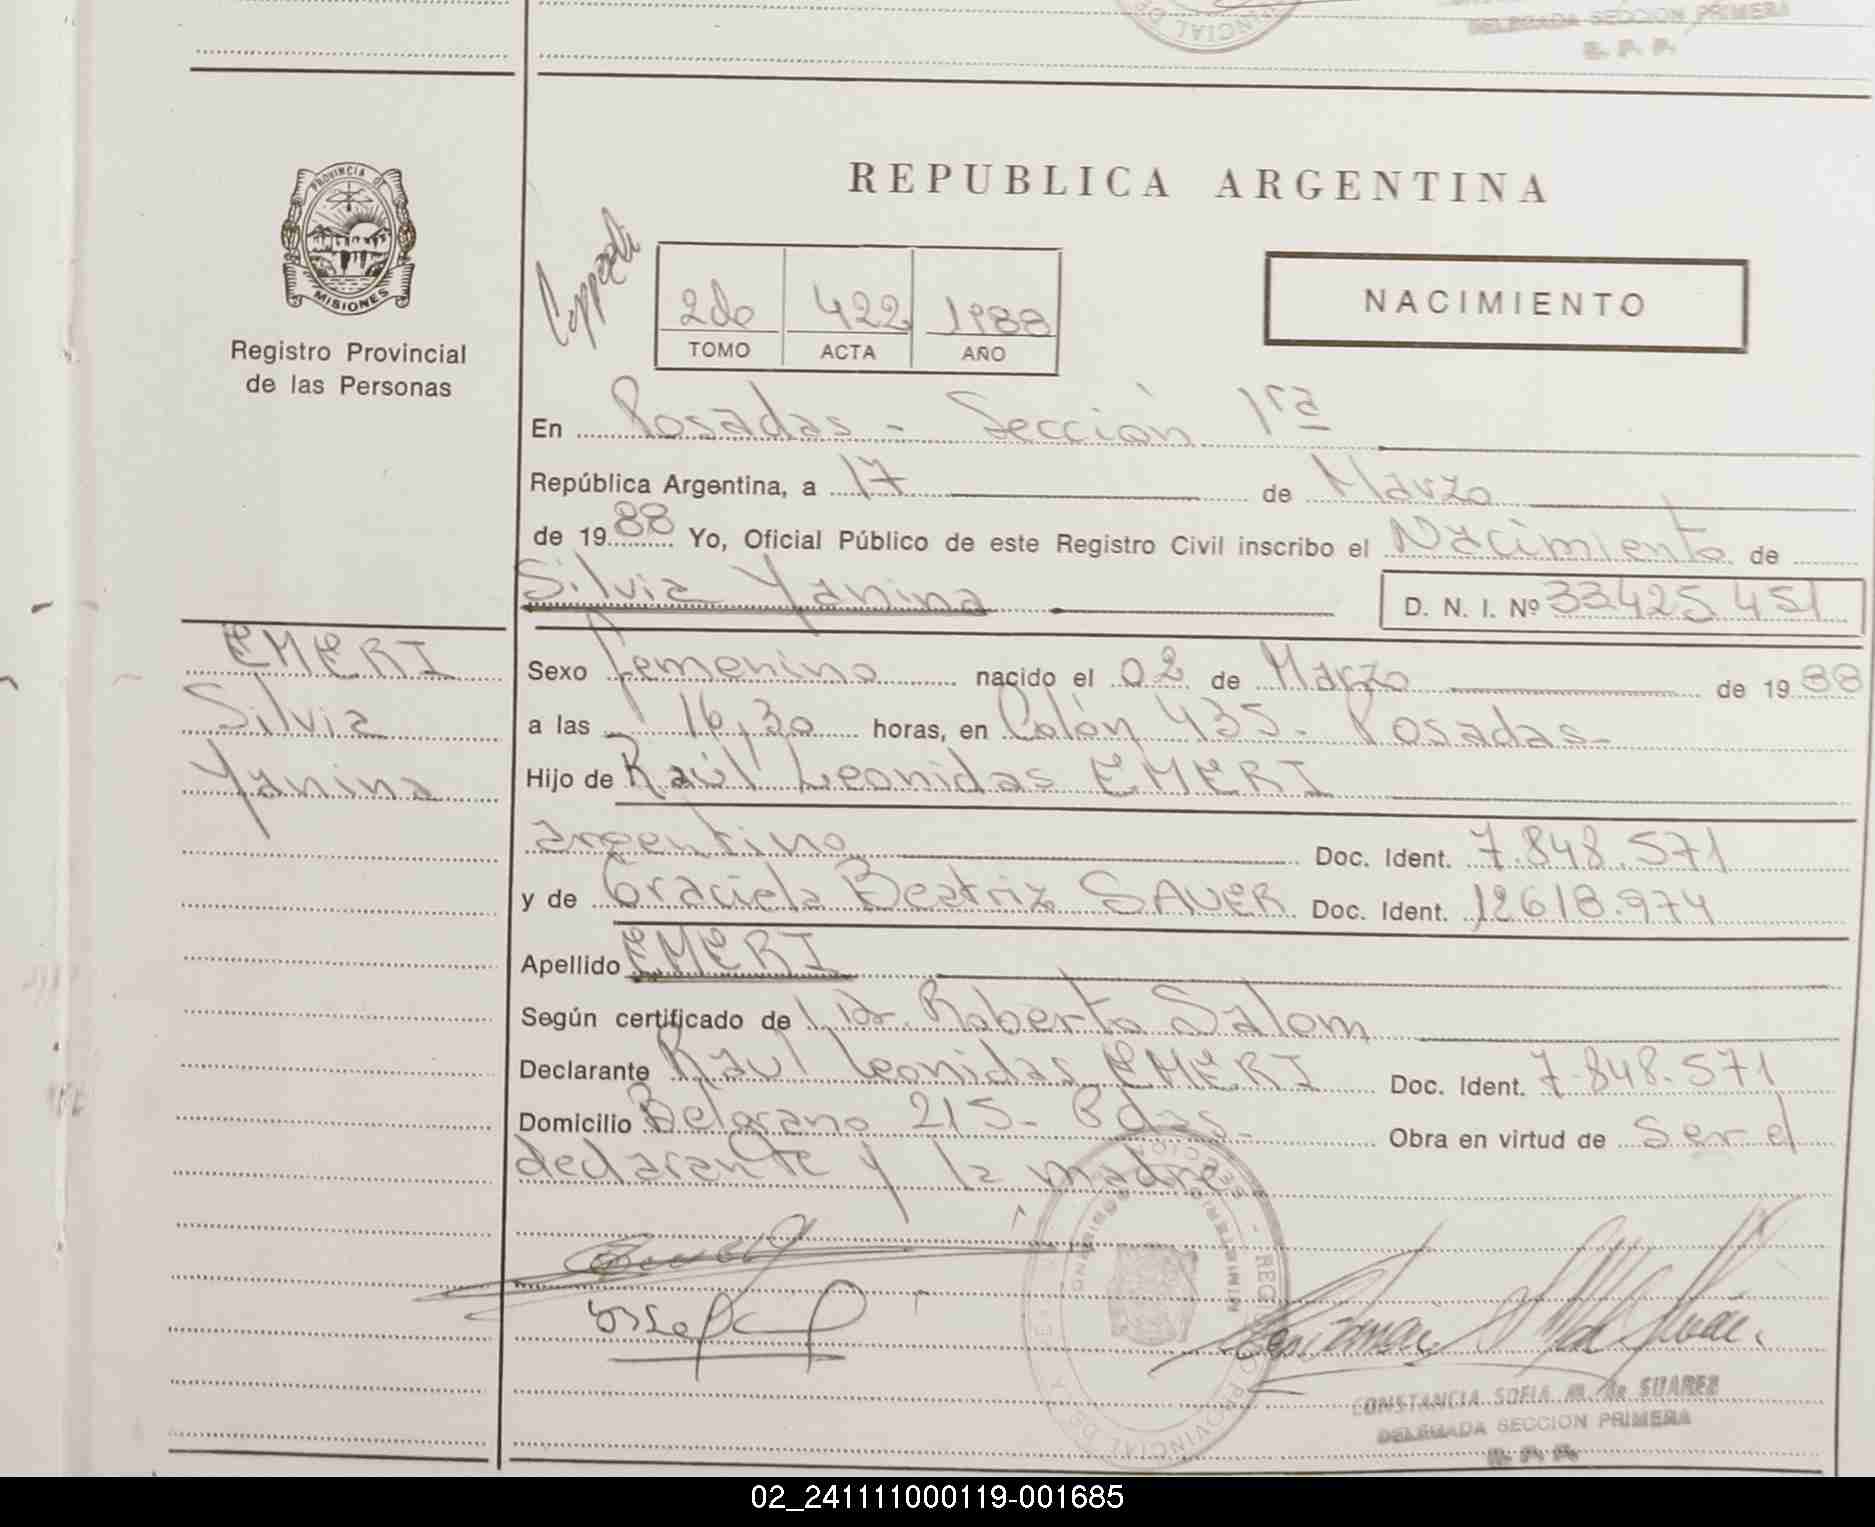 DELEGADA SECCION PRIMERA
R. P. P.
PROVINCIA DE
MISIONES
Registro Provincial
de las Personas
REPUBLICA ARGENTINA
2do 422 1988
TOMO ACTA AÑO
NACIMIENTO
En Posadas - Sección 1ra
República Argentina, a 17 de Marzo
de 1988 Yo, Oficial Público de este Registro Civil inscribo el Nacimiento de
Silvia Yanina D. N. I. Nº 33.425.451
EMERI
Silvia
Yanina
Sexo femenino nacido el 02 de Marzo de 1988
a las 16,30 horas, en Colón 435- Posadas-
Hijo de Raúl Leonidas EMERI
argentino Doc. Ident. 7.848.571
y de Graciela Beatriz SAUER Doc. Ident. 12618.974
Apellido EMERI
Según certificado de Dr. Roberto Salom
Declarante Raul Leonidas EMERI Doc. Ident. 7.848.571
Domicilio Belgrano 215- Pdas- Obra en virtud de ser el
declarante y la madre
CONSTANCIA SOFIA M. de SUAREZ
DELEGADA SECCION PRIMERA
R. P. P.
02_241111000119-001685